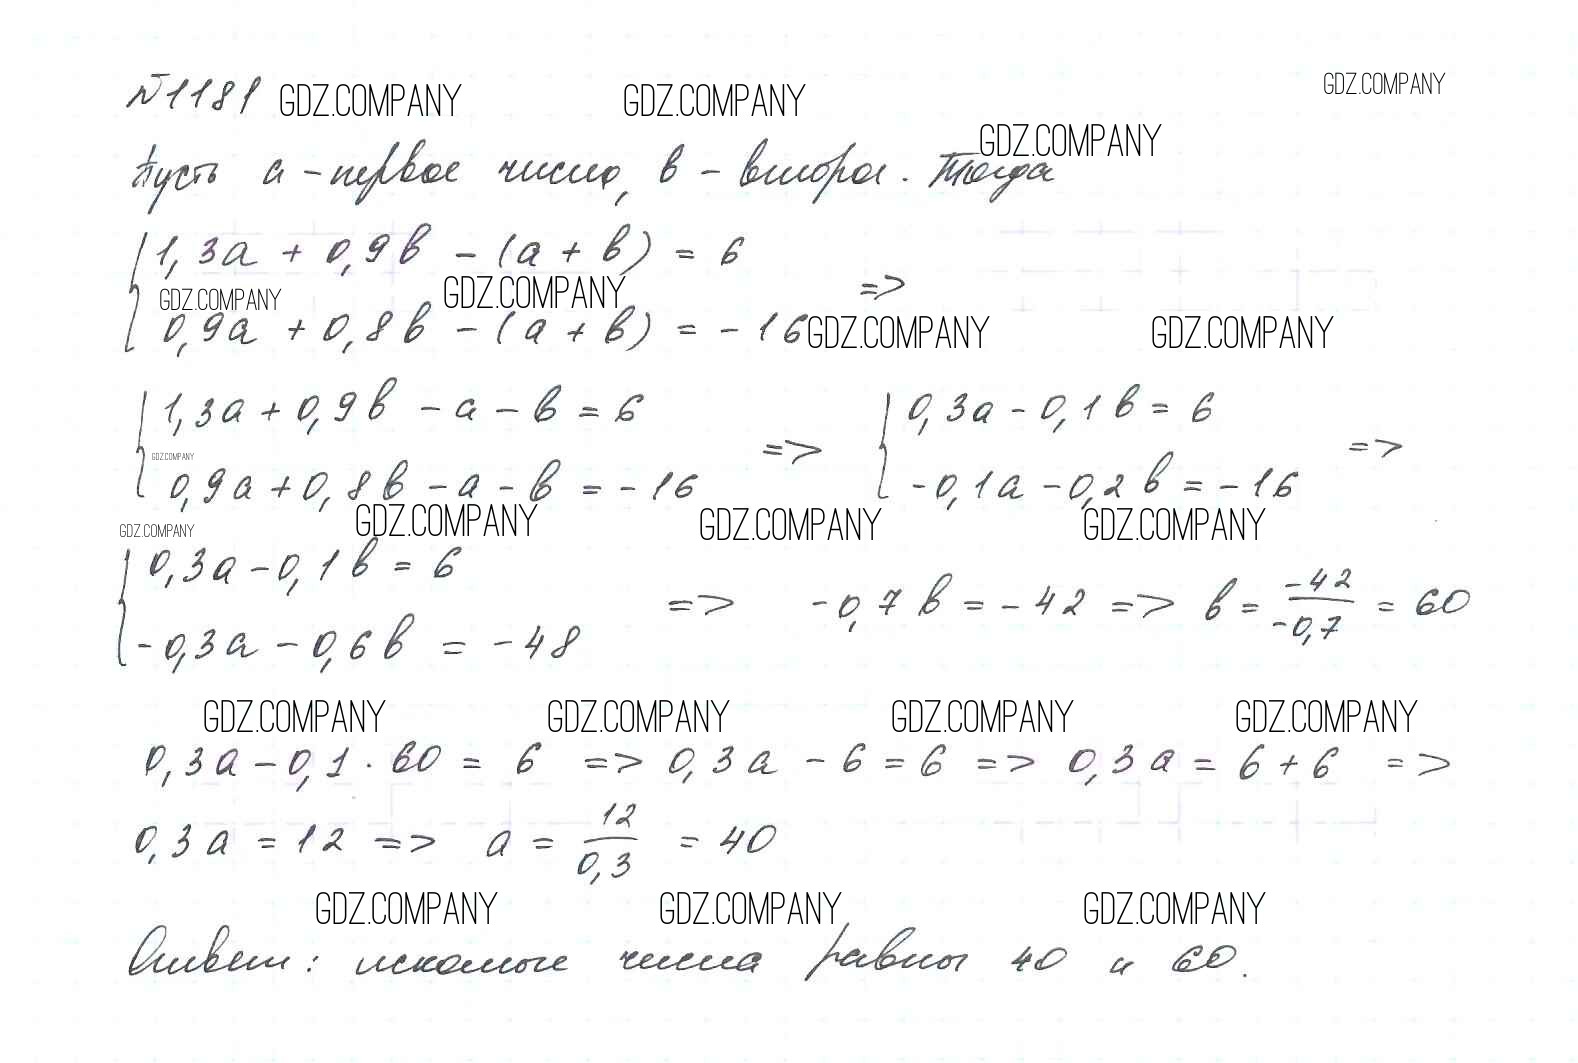 №1181 GDZ.COMPANY GDZ.COMPANY GDZ.COMPANY
GDZ.COMPANY
Пусть а – первое число, в – второе. Тогда
1,3а + 0,9в – (а + в) = 6
GDZ.COMPANY GDZ.COMPANY =>
0,9а + 0,8в – (а + в) = – 16 GDZ.COMPANY GDZ.COMPANY
1,3а + 0,9в – а – в = 6 0,3а – 0,1в = 6
GDZ.COMPANY => =>
0,9а + 0,8в – а – в = – 16 -0,1а – 0,2в = – 16
GDZ.COMPANY GDZ.COMPANY GDZ.COMPANY GDZ.COMPANY
0,3а – 0,1в = 6
=> -0,7в = – 42 => в = -42/-0,7 = 60
-0,3а – 0,6в = – 48
GDZ.COMPANY GDZ.COMPANY GDZ.COMPANY GDZ.COMPANY
0,3а – 0,1 · 60 = 6 => 0,3а – 6 = 6 => 0,3а = 6 + 6 =>
0,3а = 12 => а = 12/0,3 = 40
GDZ.COMPANY GDZ.COMPANY GDZ.COMPANY
Ответ: искомые числа равны 40 и 60.